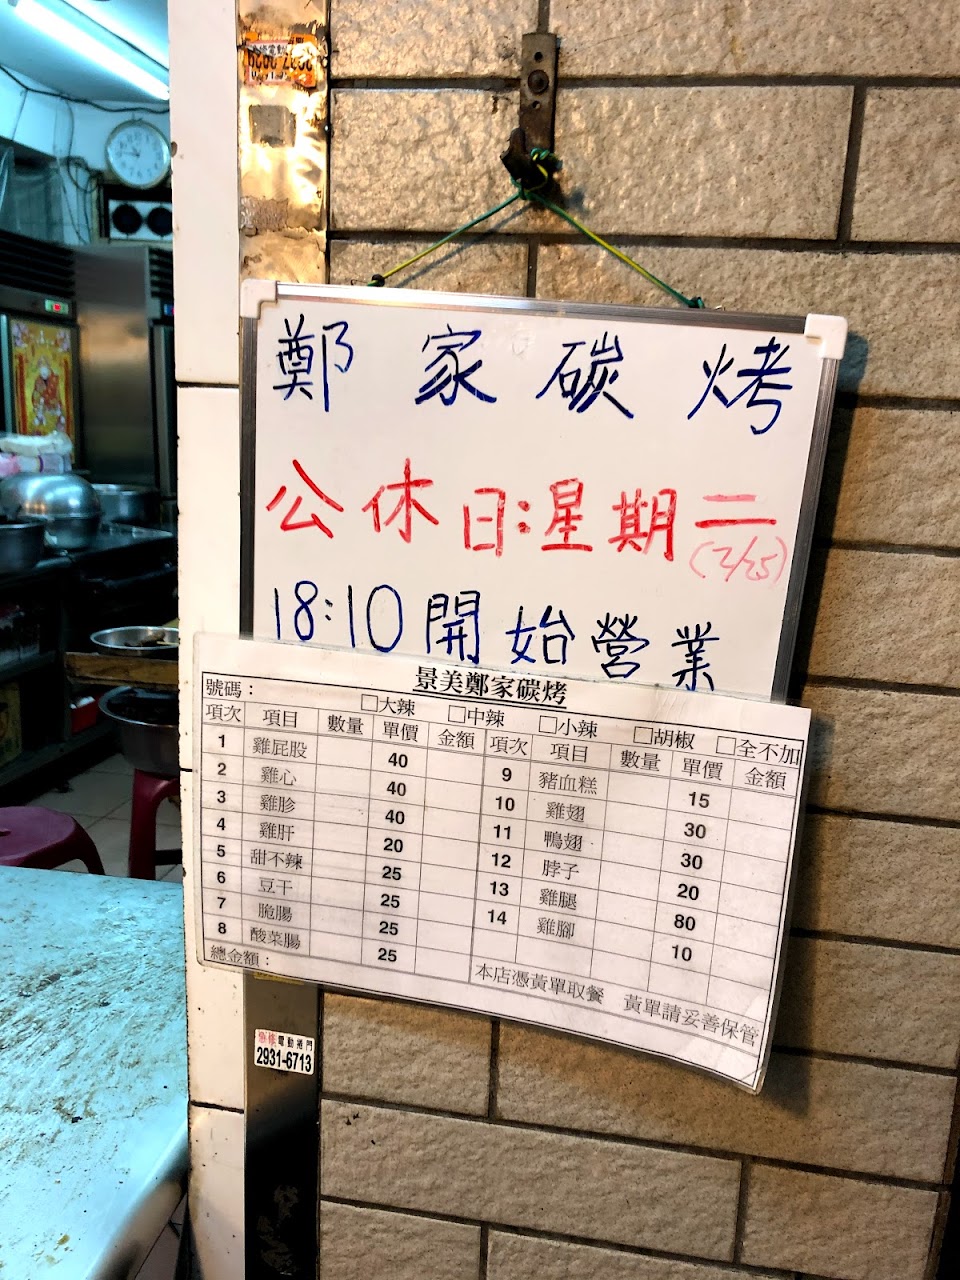 鄭家碳烤
公休日:星期二
(2/25)
18:10開始營業
景美鄭家碳烤
號碼： □大辣 □中辣 □小辣 □胡椒 □全不加
項次 項目 數量 單價 金額 項次 項目 數量 單價 金額
1 雞屁股 40 9 豬血糕 15
2 雞心 40 10 雞翅 30
3 雞胗 40 11 鴨翅 30
4 雞肝 20 12 脖子 20
5 甜不辣 25 13 雞腿 80
6 豆干 25 14 雞腳 10
7 脆腸 25
8 酸菜腸 25
總金額： 本店憑黃單取餐 黃單請妥善保管
電動捲門
2931-6713